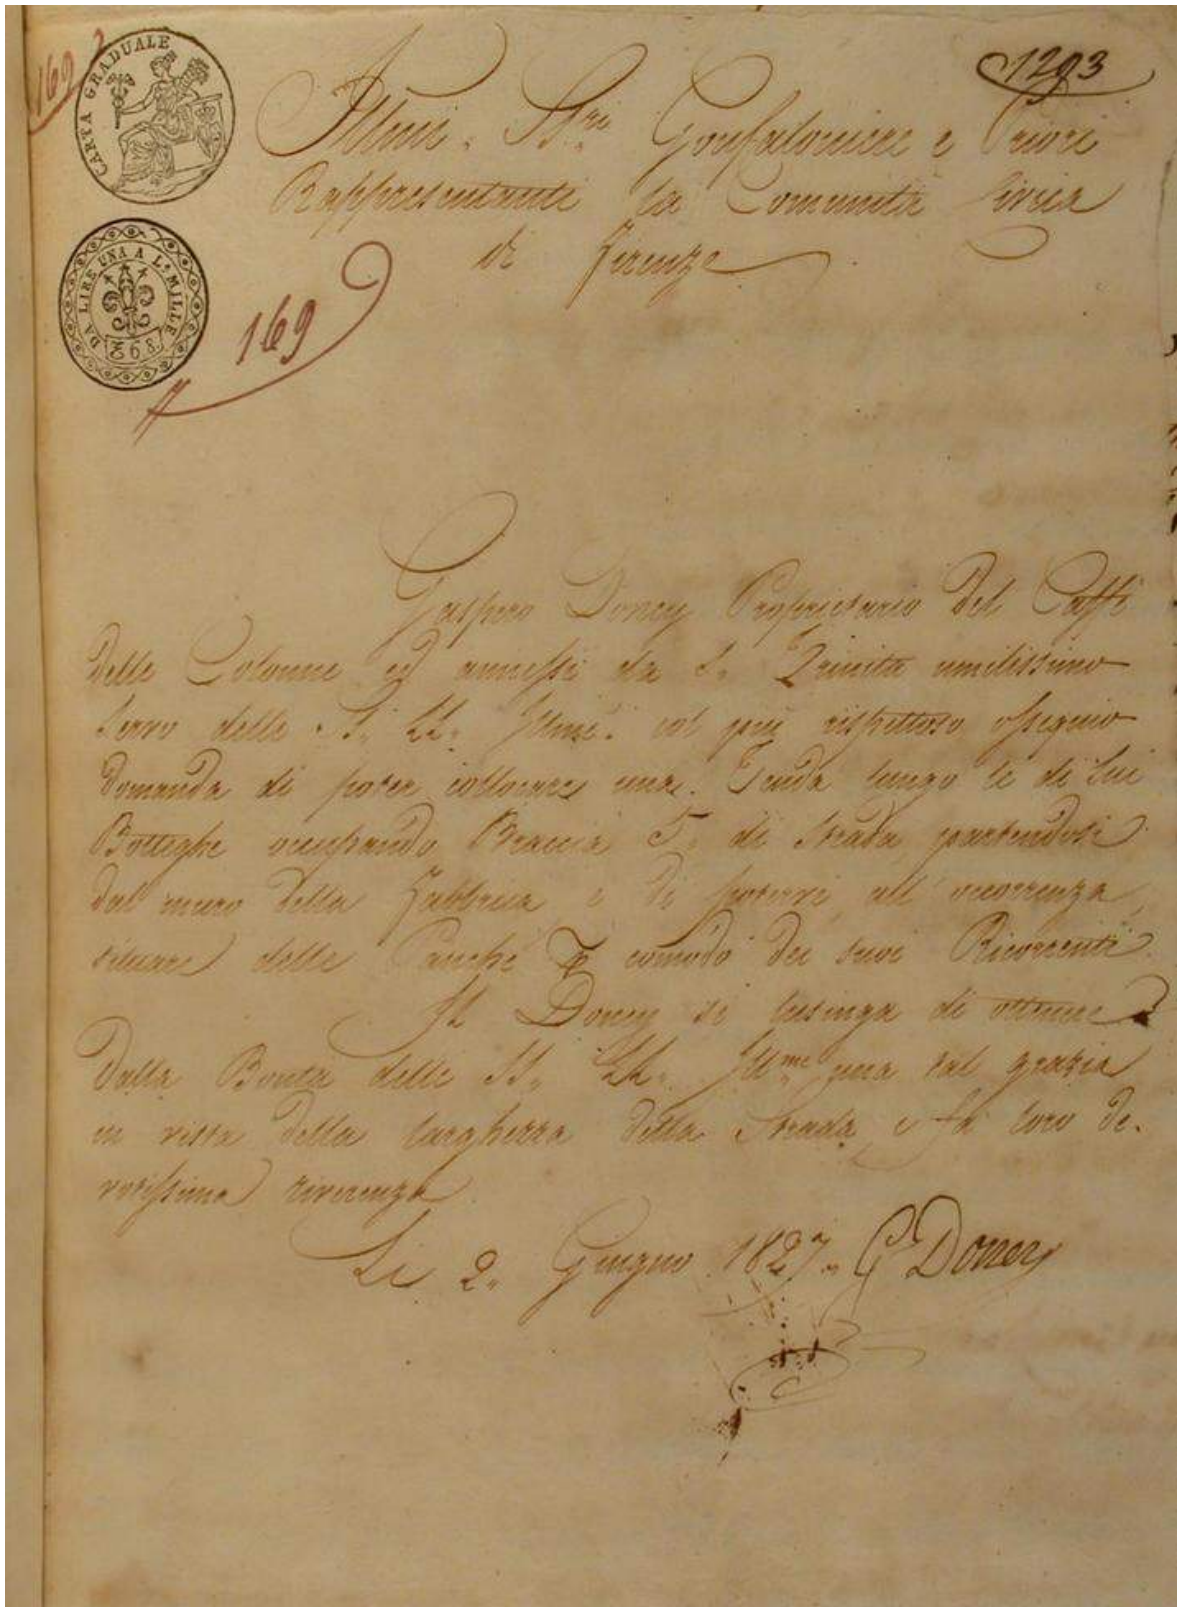 169
1293
CARTA GRADUALE
Illmi. SS.ri Gonfaloniere e Priori
Rappresentanti la Comunità Civica
di Firenze
DA LIRE UNA A L. MILLE
68
169
Gaspero Doney Proprietario del Caffè
delle Colonne ed annessi da S. Trinita umilissimo
servo delle SS. LL. Illme. col più rispettoso ossequio
domanda di poter collocare una Tenda lungo le di lui
Botteghe occupando Braccia 5. di strada partendosi
dal muro della Fabbrica e di potervi all'occorrenza
situare delle Panche comodo dei suoi Ricorrenti.
Il Doney si lusinga di ottenere
dalla Bontà delle SS. LL. Ill.me una tal grazia
in vista della larghezza della Strada, e fa loro de-
votissima riverenza.
Li 2. Giugno 1827. G Doney